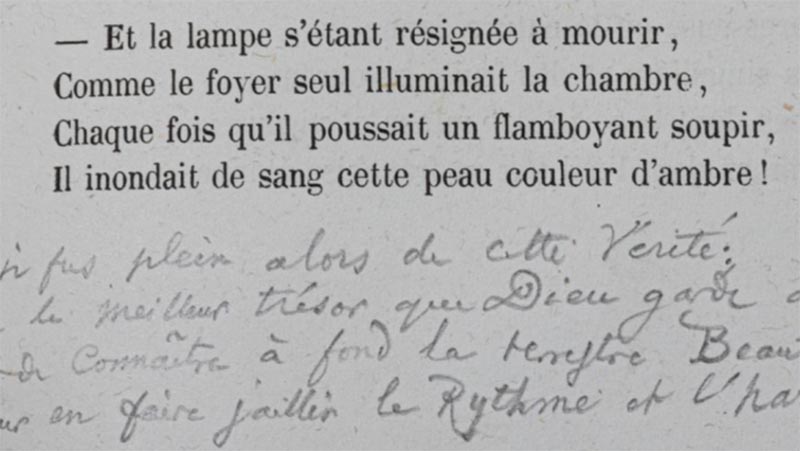 — Et la lampe s'étant résignée à mourir,
Comme le foyer seul illuminait la chambre,
Chaque fois qu'il poussait un flamboyant soupir,
Il inondait de sang cette peau couleur d'ambre !
fus plein alors de cette Vérité:
le meilleur trésor que Dieu garde
de Connaître à fond la terrestre Beau
en faire jaillir le Rythme et l'ha